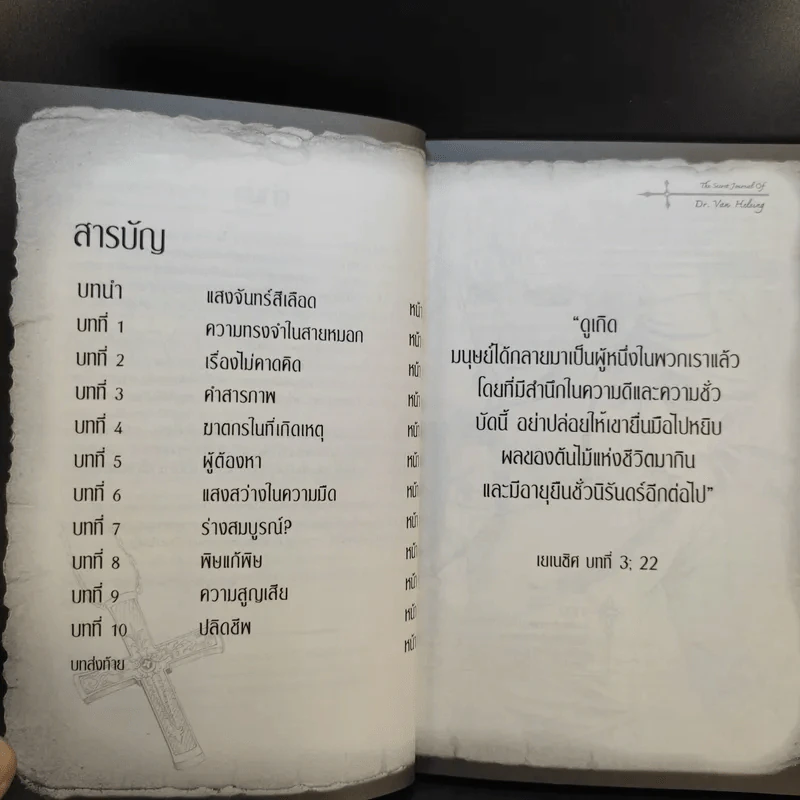 สารบัญ
บทนำ แสงจันทร์สีเลือด หน้า
บทที่ 1 ความทรงจำในสายหมอก หน้า
บทที่ 2 เรื่องไม่คาดคิด หน้า
บทที่ 3 คำสารภาพ หน้า
บทที่ 4 ฆาตกรในที่เกิดเหตุ หน้า
บทที่ 5 ผู้ต้องหา หน้า
บทที่ 6 แสงสว่างในความมืด หน้า
บทที่ 7 ร่างสมบูรณ์? หน้า
บทที่ 8 พิษแก้พิษ หน้า
บทที่ 9 ความสูญเสีย หน้า
บทที่ 10 ปลิดชีพ หน้า
บทส่งท้าย หน้า
The Secret Journal Of
Dr. Van Helsing
“ดูเถิด
มนุษย์ได้กลายมาเป็นผู้หนึ่งในพวกเราแล้ว
โดยที่มีสำนึกในความดีและความชั่ว
บัดนี้ อย่าปล่อยให้เขายื่นมือไปหยิบ
ผลของต้นไม้แห่งชีวิตมากิน
และมีอายุยืนชั่วนิรันดร์อีกต่อไป”
เยเนซิศ บทที่ 3; 22